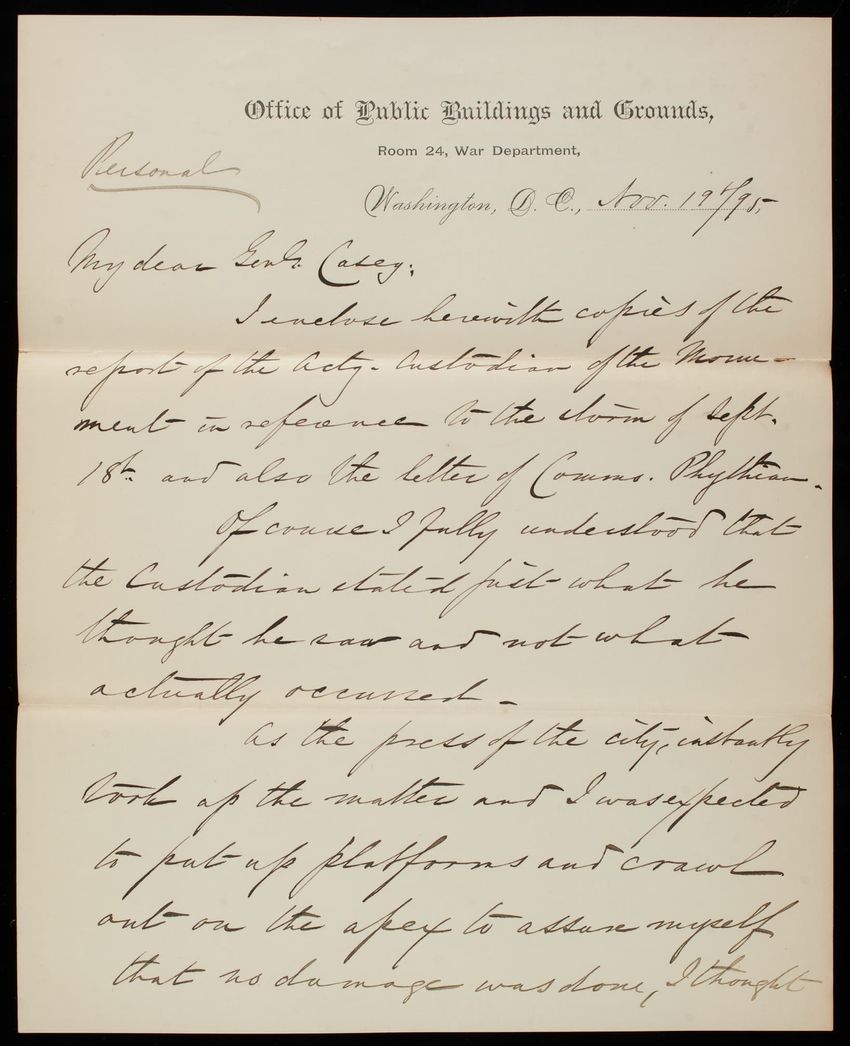 Office of Public Buildings and Grounds,
Room 24, War Department,
Personal
Washington, D. C., Nov. 19th/95,
My dear Genl. Casey:
I enclose herewith copies of the
report of the Actg. Custodian of the Monu-
ment in reference to the storm of Sept.
18th. and also the letter of Commo. Phythian.
Of course I fully understood that
the Custodian stated just what he
thought he saw and not what
actually occurred -
As the press of the city, instantly
took up the matter and I was expected
to put up platforms and crawl
out on the apex to assure myself
that no damage was done, I thought